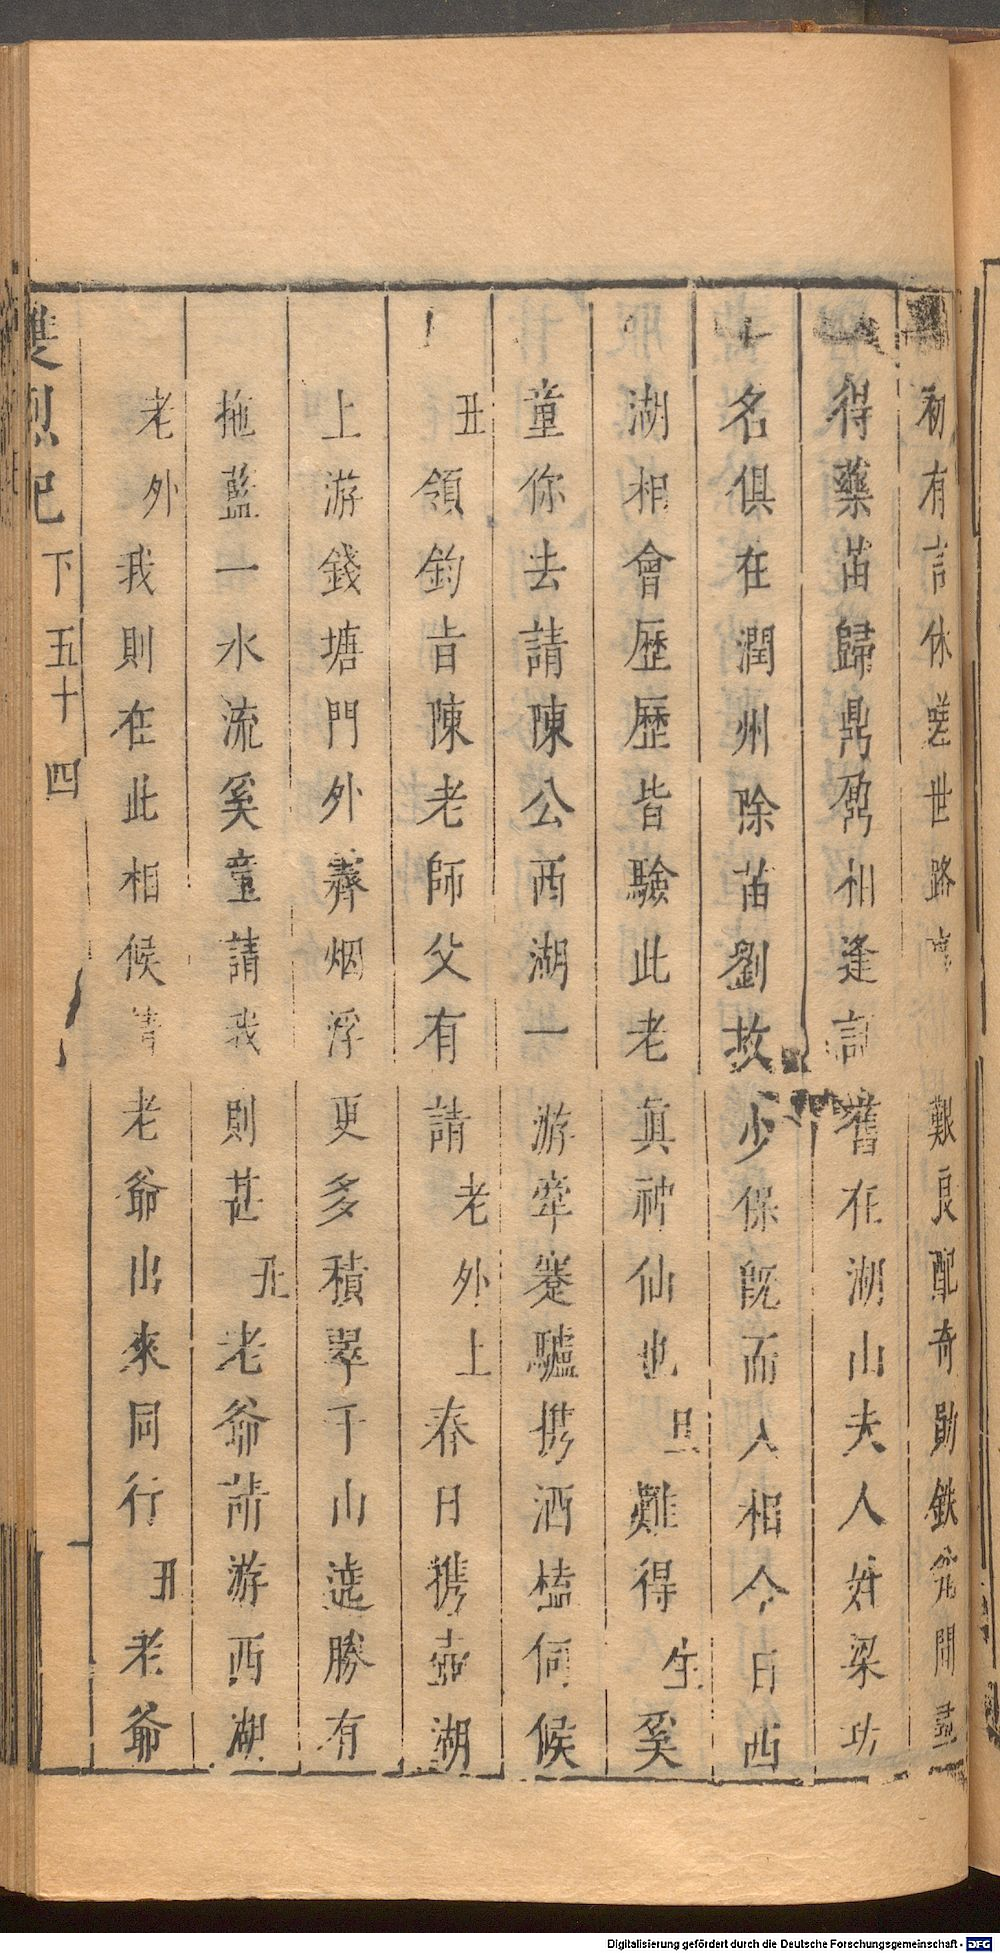 初有言休嗟世路 艱良配奇勛鉄券間 
得藥苗歸鼎鼐相逢記舊在湖山夫人好梁功
名俱在潤州除苗劉故少保旣而入相今日西
湖相會歷歷皆驗此老眞神仙也旦難得生奚
童你去請陳公西湖一游牽蹇驢携酒榼伺候
丑領鈞旨陳老師父有請老外上春日携壺湖
上游錢塘門外霽烟浮更多積翠千山遶勝有
拖藍一水流奚童請我則甚丑老爺請游西湖
老外我則在此相候請老爺出來同行丑老爺
雙烈記 下 五十四
Digitalisierung gefördert durch die Deutsche Forschungsgemeinschaft - DFG